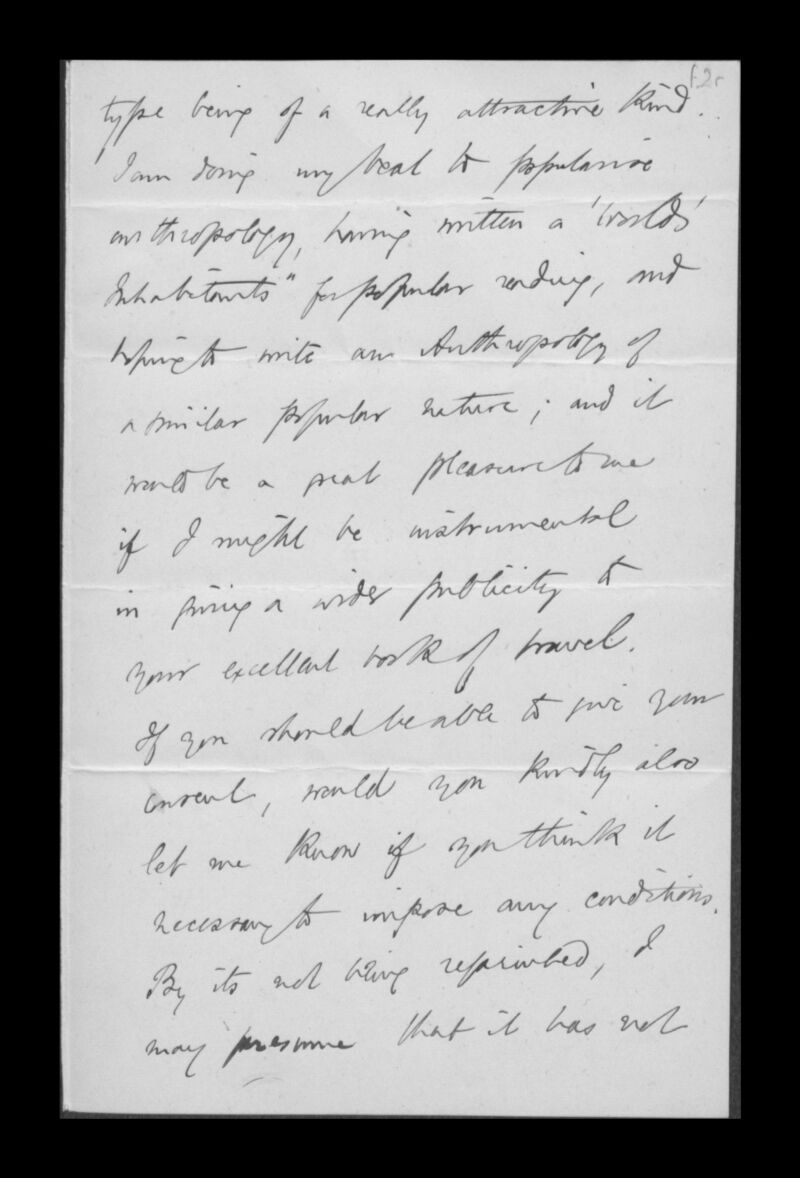 f.2r
type being of a really attractive kind.
I am doing my best to popularise
anthropology, having written a 'World's
Inhabitants" for popular reading, and
hoping to write an Anthropology of
a similar popular nature; and it
would be a great pleasure to me
if I might be instrumental
in giving a wider publicity to
your excellent work of travel.
If you should be able to give your
consent, would you kindly also
let me know if you think it
necessary to impose any conditions.
By its not being reprinted, I
may presume that it has not